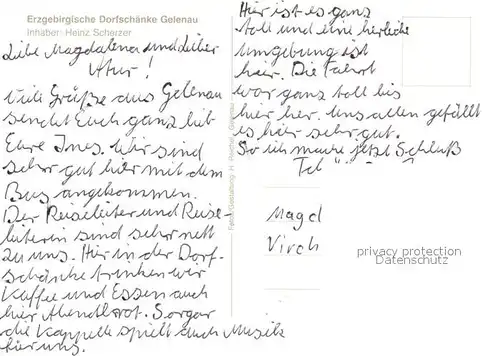 Erzgebirgische Dorfschänke Gelenau
Inhaber: Heinz Scherzer
Liebe Magdalena und Lieber
Atur!
Viele Grüße aus Gelenau
sendet Euch ganz lieb
Eure Ines. Wir sind
sehr gut hier mit dem
Bus angekommen.
Der Reiseleiter und Reise-
leiterin sind sehr nett
zu uns. Hier in der Dorf-
schänke trinken wir
Kaffee und Essen auch
hier Abendbrot. Sogar
die Kappelle spielt auch Musik
für uns.
Hier ist es ganz
toll und eine herliche
Umgebung ist
hier. Die Fahrt
war ganz toll bis
hier her. Uns allen gefällt
es hier sehr gut.
So ich mache jetzt Schluß
Magd
Virch
privacy protection
Datenschutz